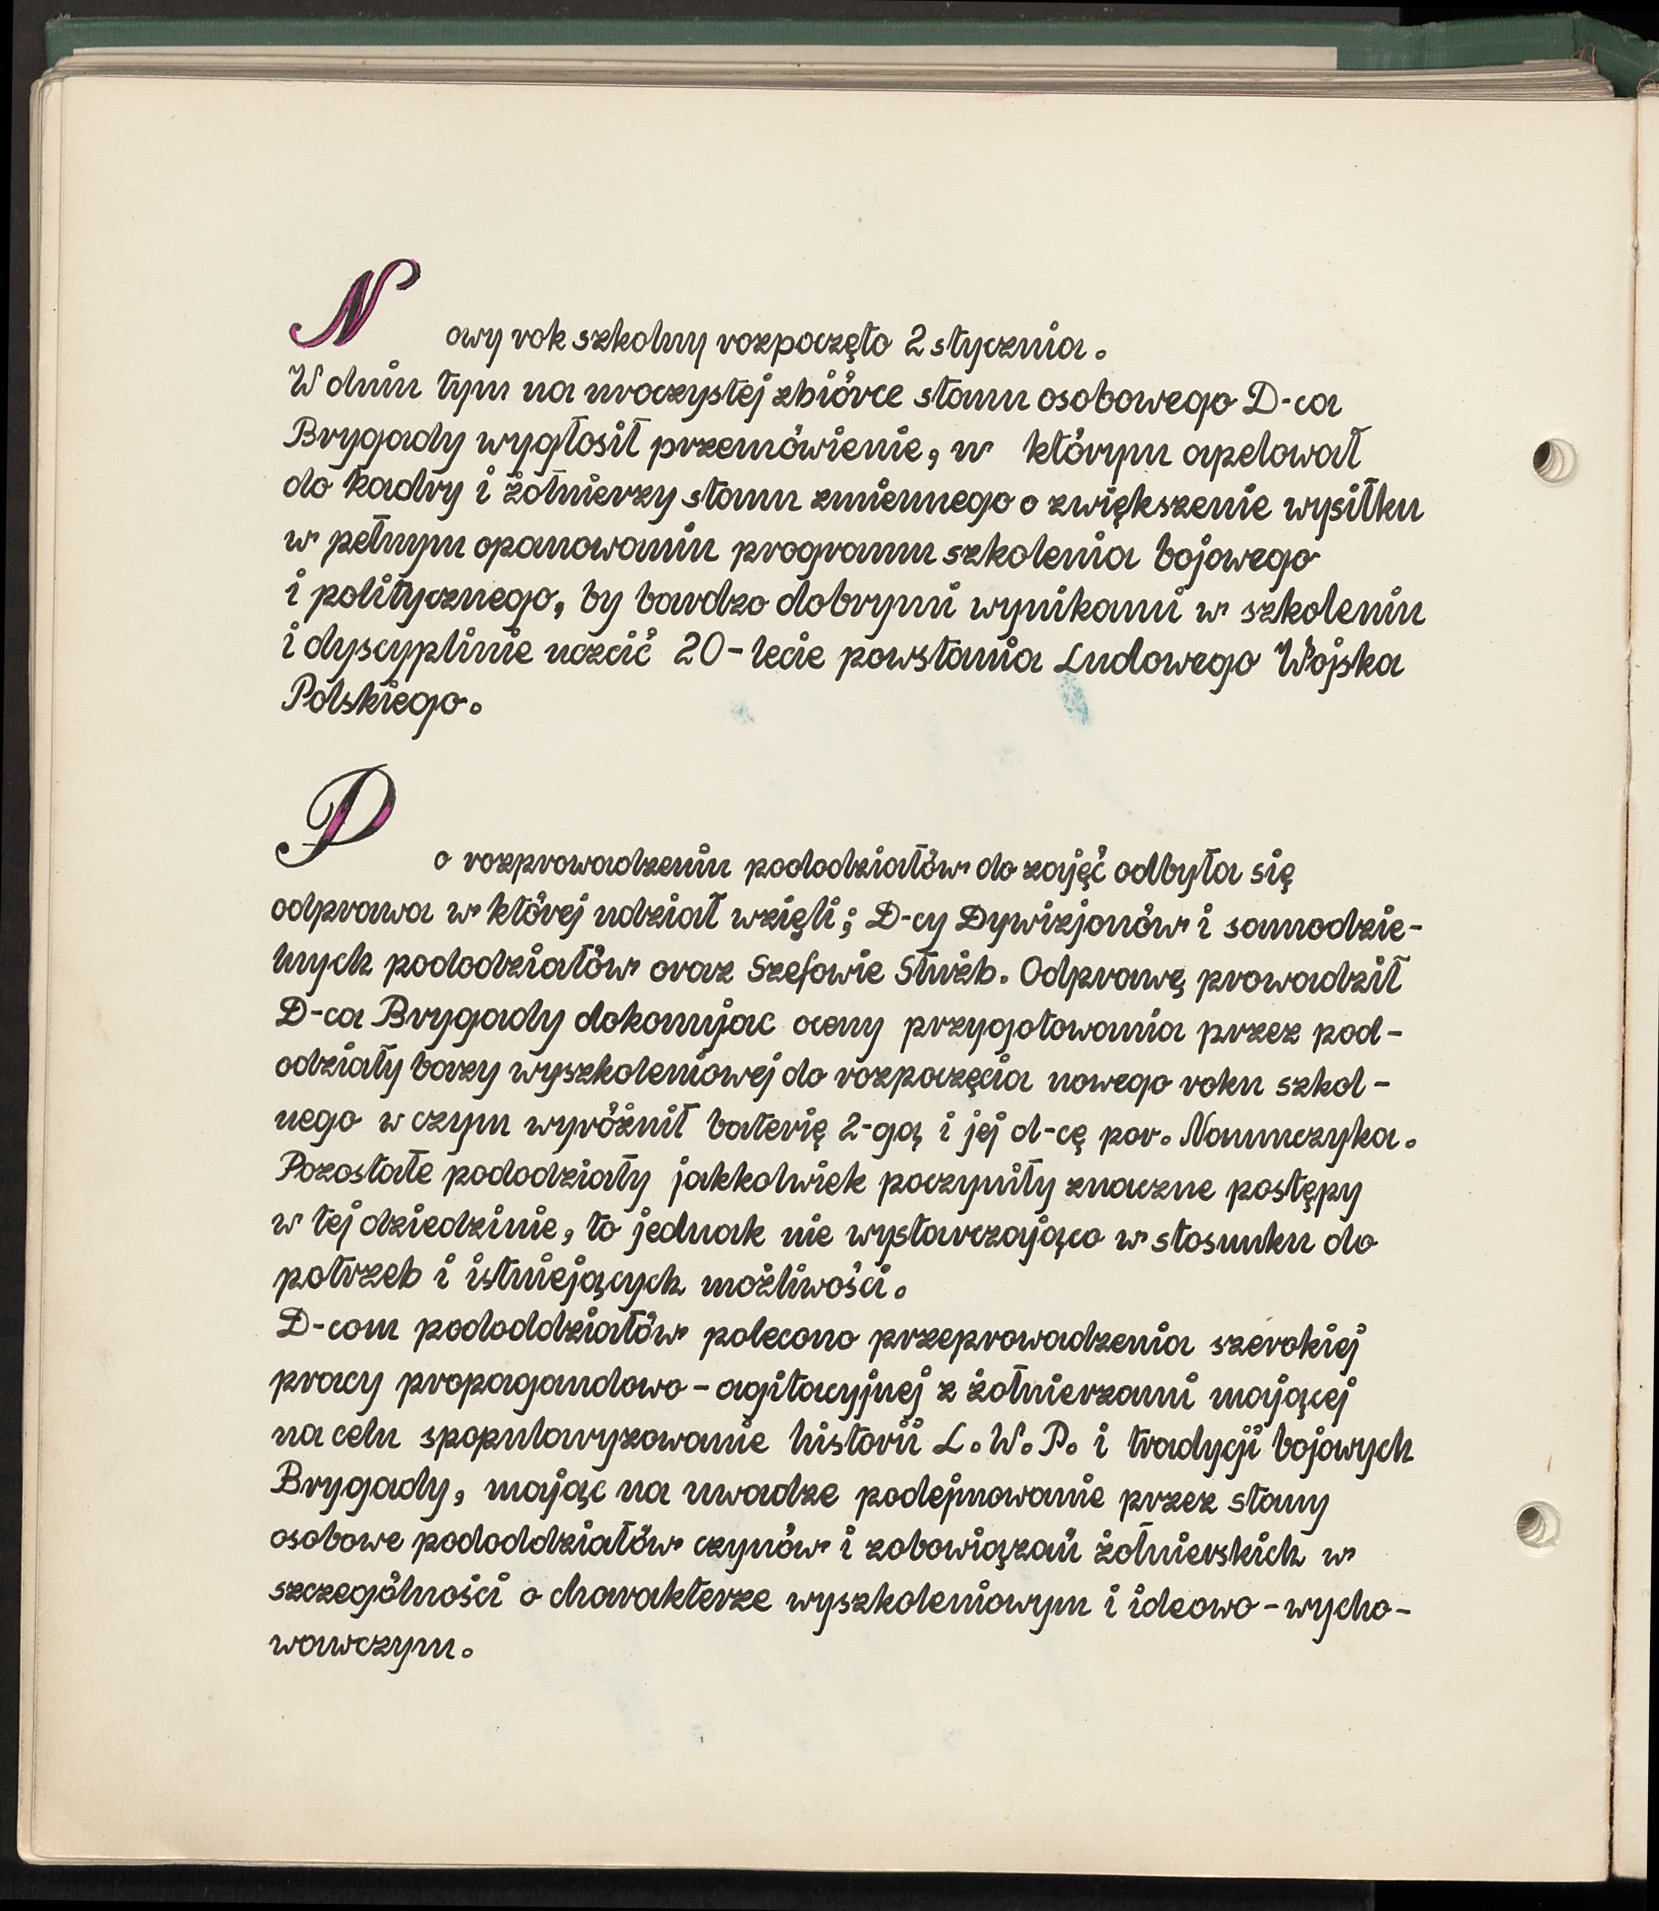 Nowy rok szkolny rozpoczęto 2 stycznia.
W dniu tym na uroczystej zbiórce stanu osobowego D-ca
Brygady wygłosił przemówienie, w którym apelował
do kadry i żołnierzy stanu zmiennego o zwiększenie wysiłku
w pełnym opanowaniu programu szkolenia bojowego
i politycznego, by bardzo dobrymi wynikami w szkoleniu
i dyscyplinie uczcić 20-lecie powstania Ludowego Wojska
Polskiego.
Po rozprowadzeniu pododziałów do zajęć odbyła się
odprawa w której udział wzięli; D-cy Dywizjonów i samodzie-
lnych pododziałów oraz Szefowie Służb. Odprawę prowadził
D-ca Brygady dokonujac oceny przygotowania przez pod-
odziały bazy wyszkoleniowej do rozpoczęcia nowego roku szkol-
nego w czym wyróżnił baterię 2-gą i jej d-cę por. Naumczyka.
Pozostałe pododziały jakkolwiek poczyniły znaczne postępy
w tej dziedzinie, to jednak nie wystarczająco w stosunku do
potrzeb i istniejących możliwości.
D-com pododdziałów polecono przeprowadzenia szerokiej
pracy propagandowo-agitacyjnej z żołnierzami mającej
na celu spopularyzowanie historii L.W.P. i tradycji bojowych
Brygady, mając na uwadze podejmowanie przez stany
osobowe pododdziałów czynów i zobowiązań żołnierskich w
szczególności o charakterze wyszkoleniowym i ideowo-wycho-
wawczym.